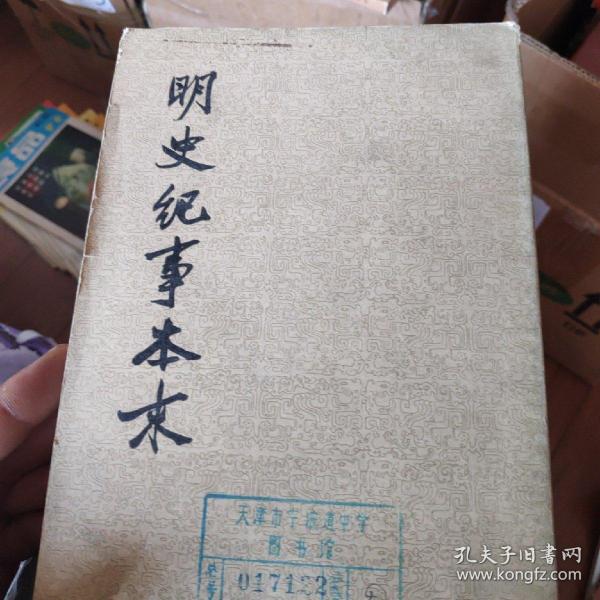 明史纪事本末
天津市宁
道中学
图书馆
017122
孔夫子旧书网
www.kongfz.com